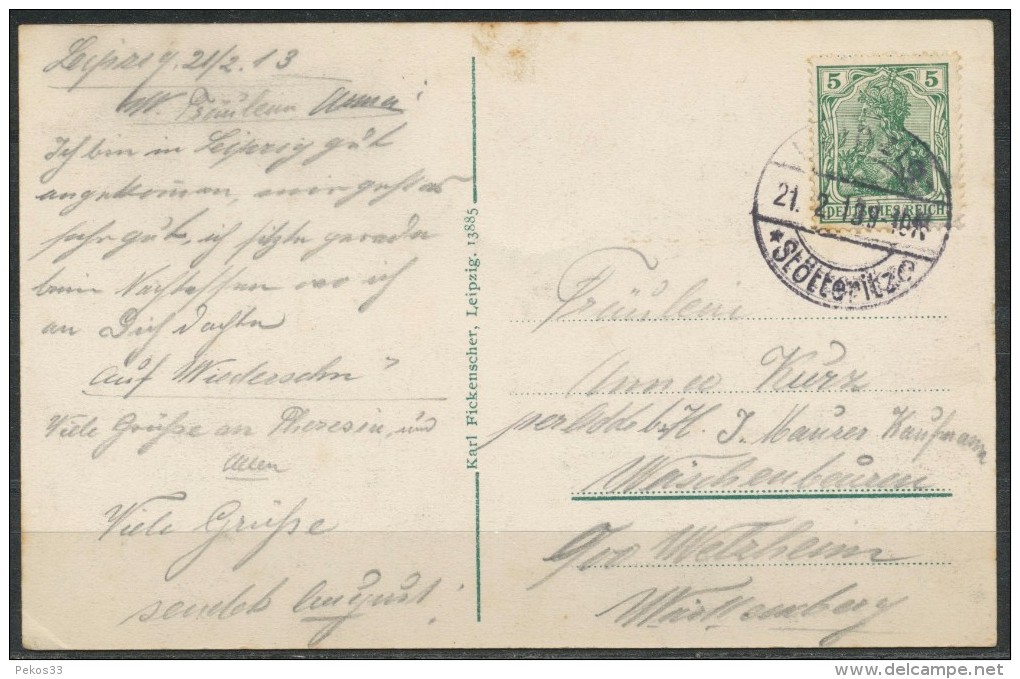 Leipzig, 21/2. 13
W. Fräulein Anna!
Ich bin in Leipzig gut
angekommen, mir geht es
sehr gut, ich sitze gerade
beim Nachtessen wo ich
an Dich dachte
auf Wiedersehn
Viele Grüße an Theresia, und
allen
Viele Grüße
sendet August
Karl Fickenscher, Leipzig. 13885
5 5
DEUTSCHES REICH
21. 2. 13
*Stötteritz
Fräulein
Anna Kurz
J. Maurer Kaufmann
Wäschenbeuren
Welzheim
Württemberg
Pekos33
delcampe.net